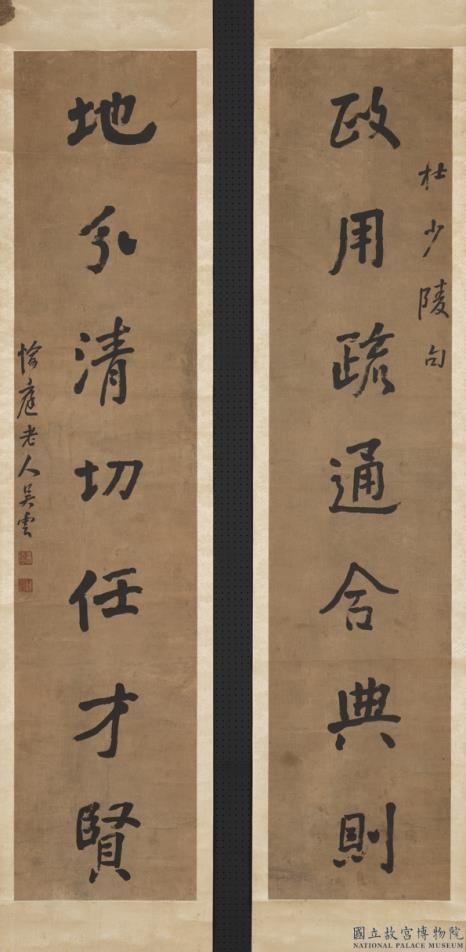 杜少陵句
政用疏通合典則
地分清切任才賢
愉庭老人吳雲
國立故宮博物院
NATIONAL PALACE MUSEUM